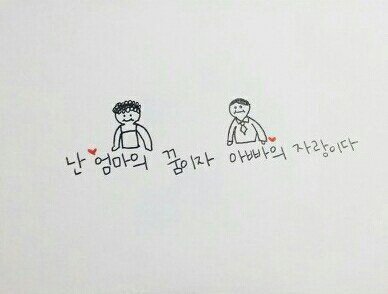 난 엄마의 꿈이자 아빠의 자랑이다